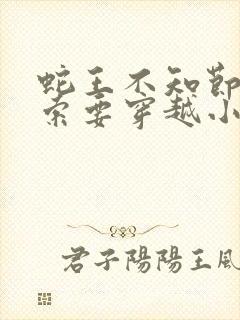 蛇王不知節
索要穿越小
君子陽陽王風